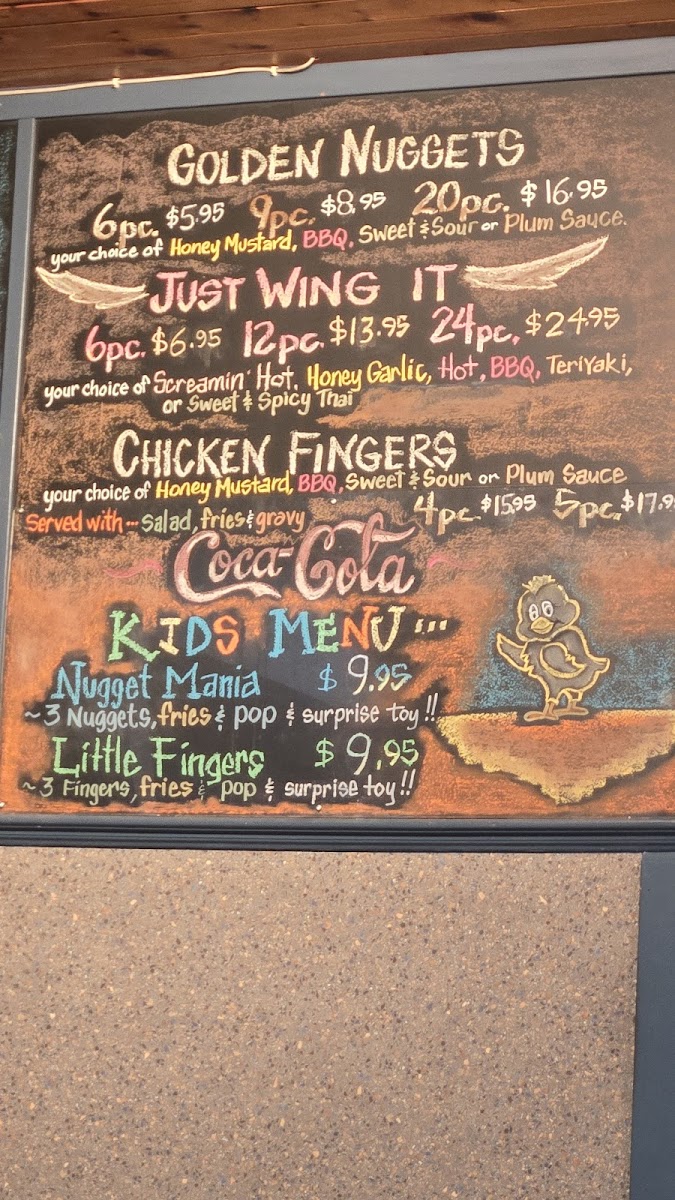 GOLDEN NUGGETS
6pc. $5.95 9pc. $8.95 20pc. $16.95
your choice of Honey Mustard, BBQ, Sweet & Sour or Plum Sauce.
JUST WING IT
6pc. $6.95 12pc. $13.95 24pc. $24.95
your choice of Screamin' Hot, Honey Garlic, Hot, BBQ, Teriyaki,
or Sweet & Spicy Thai
CHICKEN FINGERS
your choice of Honey Mustard, BBQ, Sweet & Sour or Plum Sauce
Served with -- salad, fries & gravy 4pc. $15.95 5pc. $17.9
Coca-Cola
KIDS MENU ...
Nugget Mania $9.95
~3 Nuggets, fries & pop & surprise toy!!
Little Fingers $9.95
~3 Fingers, fries & pop & surprise toy!!